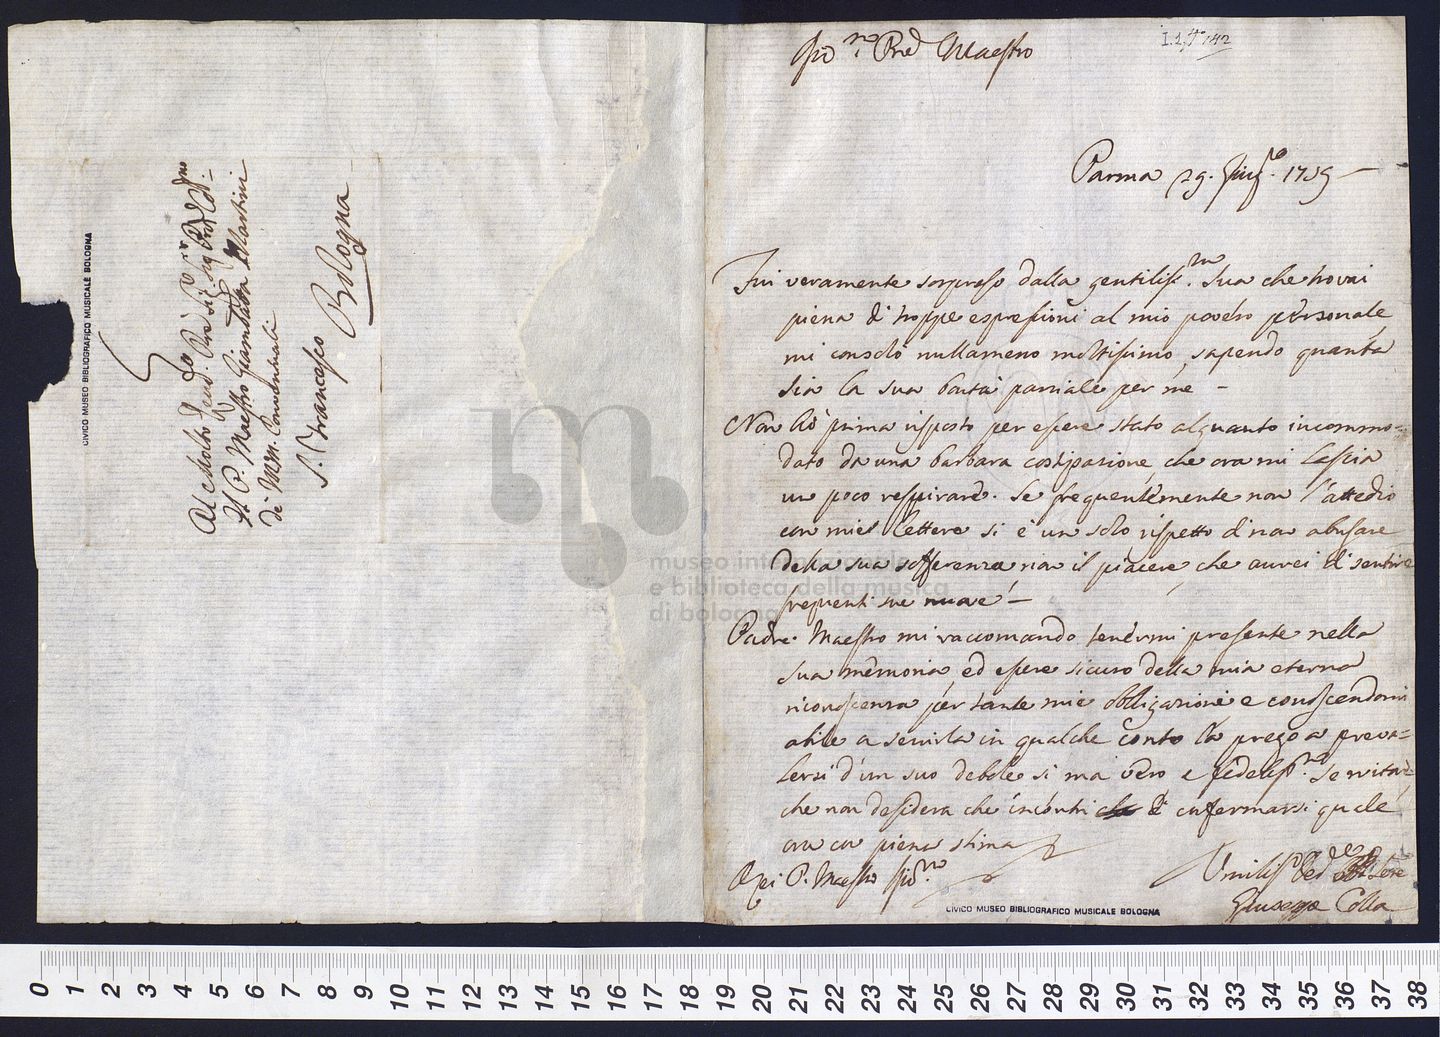 Al Molto Revd.o Pre Sig.r Sig. Pron Col.mo
Il P. Maestro Giambatta Martini
de Min. Conventuali
S. Francesco
Bologna
CIVICO MUSEO BIBLIOGRAFICO MUSICALE BOLOGNA
Pre Maestro
I.1.
142
Parma 29. Giug.o 1759
Fui veramente sorpreso dalla gentiliss.ma sua che trovai
piena di troppe espressioni al mio povero personale
mi consolò nullameno moltissimo, sapendo quanta
sia la sua bontà parziale per me –
Non hò prima risposto per essere stato alquanto incommo=
dato da una barbara costipazione, che ora mi lascia
un poco respirare. Se frequentemente non l'attedio
con mie lettere si è un solo rispetto di non abusare
della sua sofferenza non il piacere che aurei di sentire
frequenti sue nuove –
Padre Maestro mi raccomando tenermi presente nella
sua memoria, ed essere sicuro della mia eterna
riconoscenza per tante mie obbligazioni e conoscendomi
abile a servirla in qualche conto la prego a preva=
lersi d'un suo debole si ma vero e fedeliss.mo Servitor
che non desidera che incontri di confermarsi quale
ora con piena stima
Di Lei P. Maestro
Umiliss.o
Giuseppe Colla
CIVICO MUSEO BIBLIOGRAFICO MUSICALE BOLOGNA
museo internazionale
e biblioteca della musica
di bologna
0 1 2 3 4 5 6 7 8 9 10 11 12 13 14 15 16 17 18 19 20 21 22 23 24 25 26 27 28 29 30 31 32 33 34 35 36 37 38